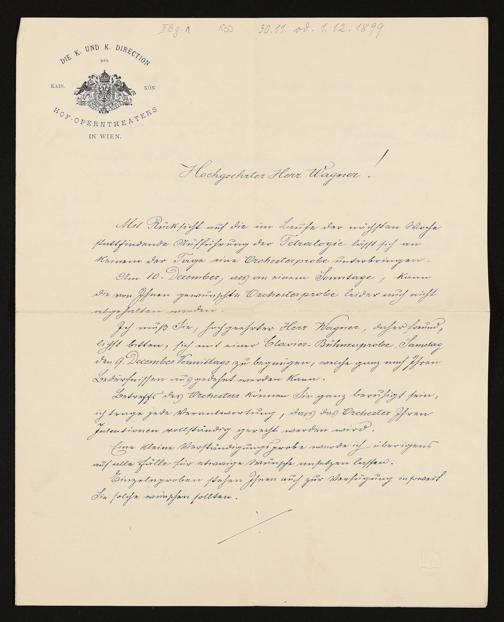 30.11. od. 1.12.1899
DIE K. UND K. DIRECTION
DES
KAIS. KÖN.
HOF-OPERNTHEATERS
IN WIEN.
Hochgeehrter Herr Wagner!
Mit Rücksicht auf die im Laufe der nächsten Woche
stattfindende Aufführung der Tetralogie läßt sich an
keinem der Tage eine Orchesterprobe unterbringen.
Am 10. December, als an einem Sonntage, kann
die von Ihnen gewünschte Orchesterprobe leider auch nicht
abgehalten werden.
Ich muß Sie, hochgeehrter Herr Wagner, daher freund-
lichst bitten, sich mit einer Clavier-Bühnenprobe, Samstag
den 9. December Vormittags, zu begnügen, welche ganz nach Ihren
Bedürfnissen ausgedehnt werden kann.
Betreffs des Orchesters können Sie ganz beruhigt sein,
ich trage jede Verantwortung, dass das Orchester Ihren
Intentionen vollständig gerecht werden wird.
Eine kleine Verständigungsprobe würde ich übrigens
auf alle Fälle für etwaige Wünsche ansetzen lassen.
Einzelproben stehen Ihnen auch zur Verfügung insoweit
Sie solche wünschen sollten.